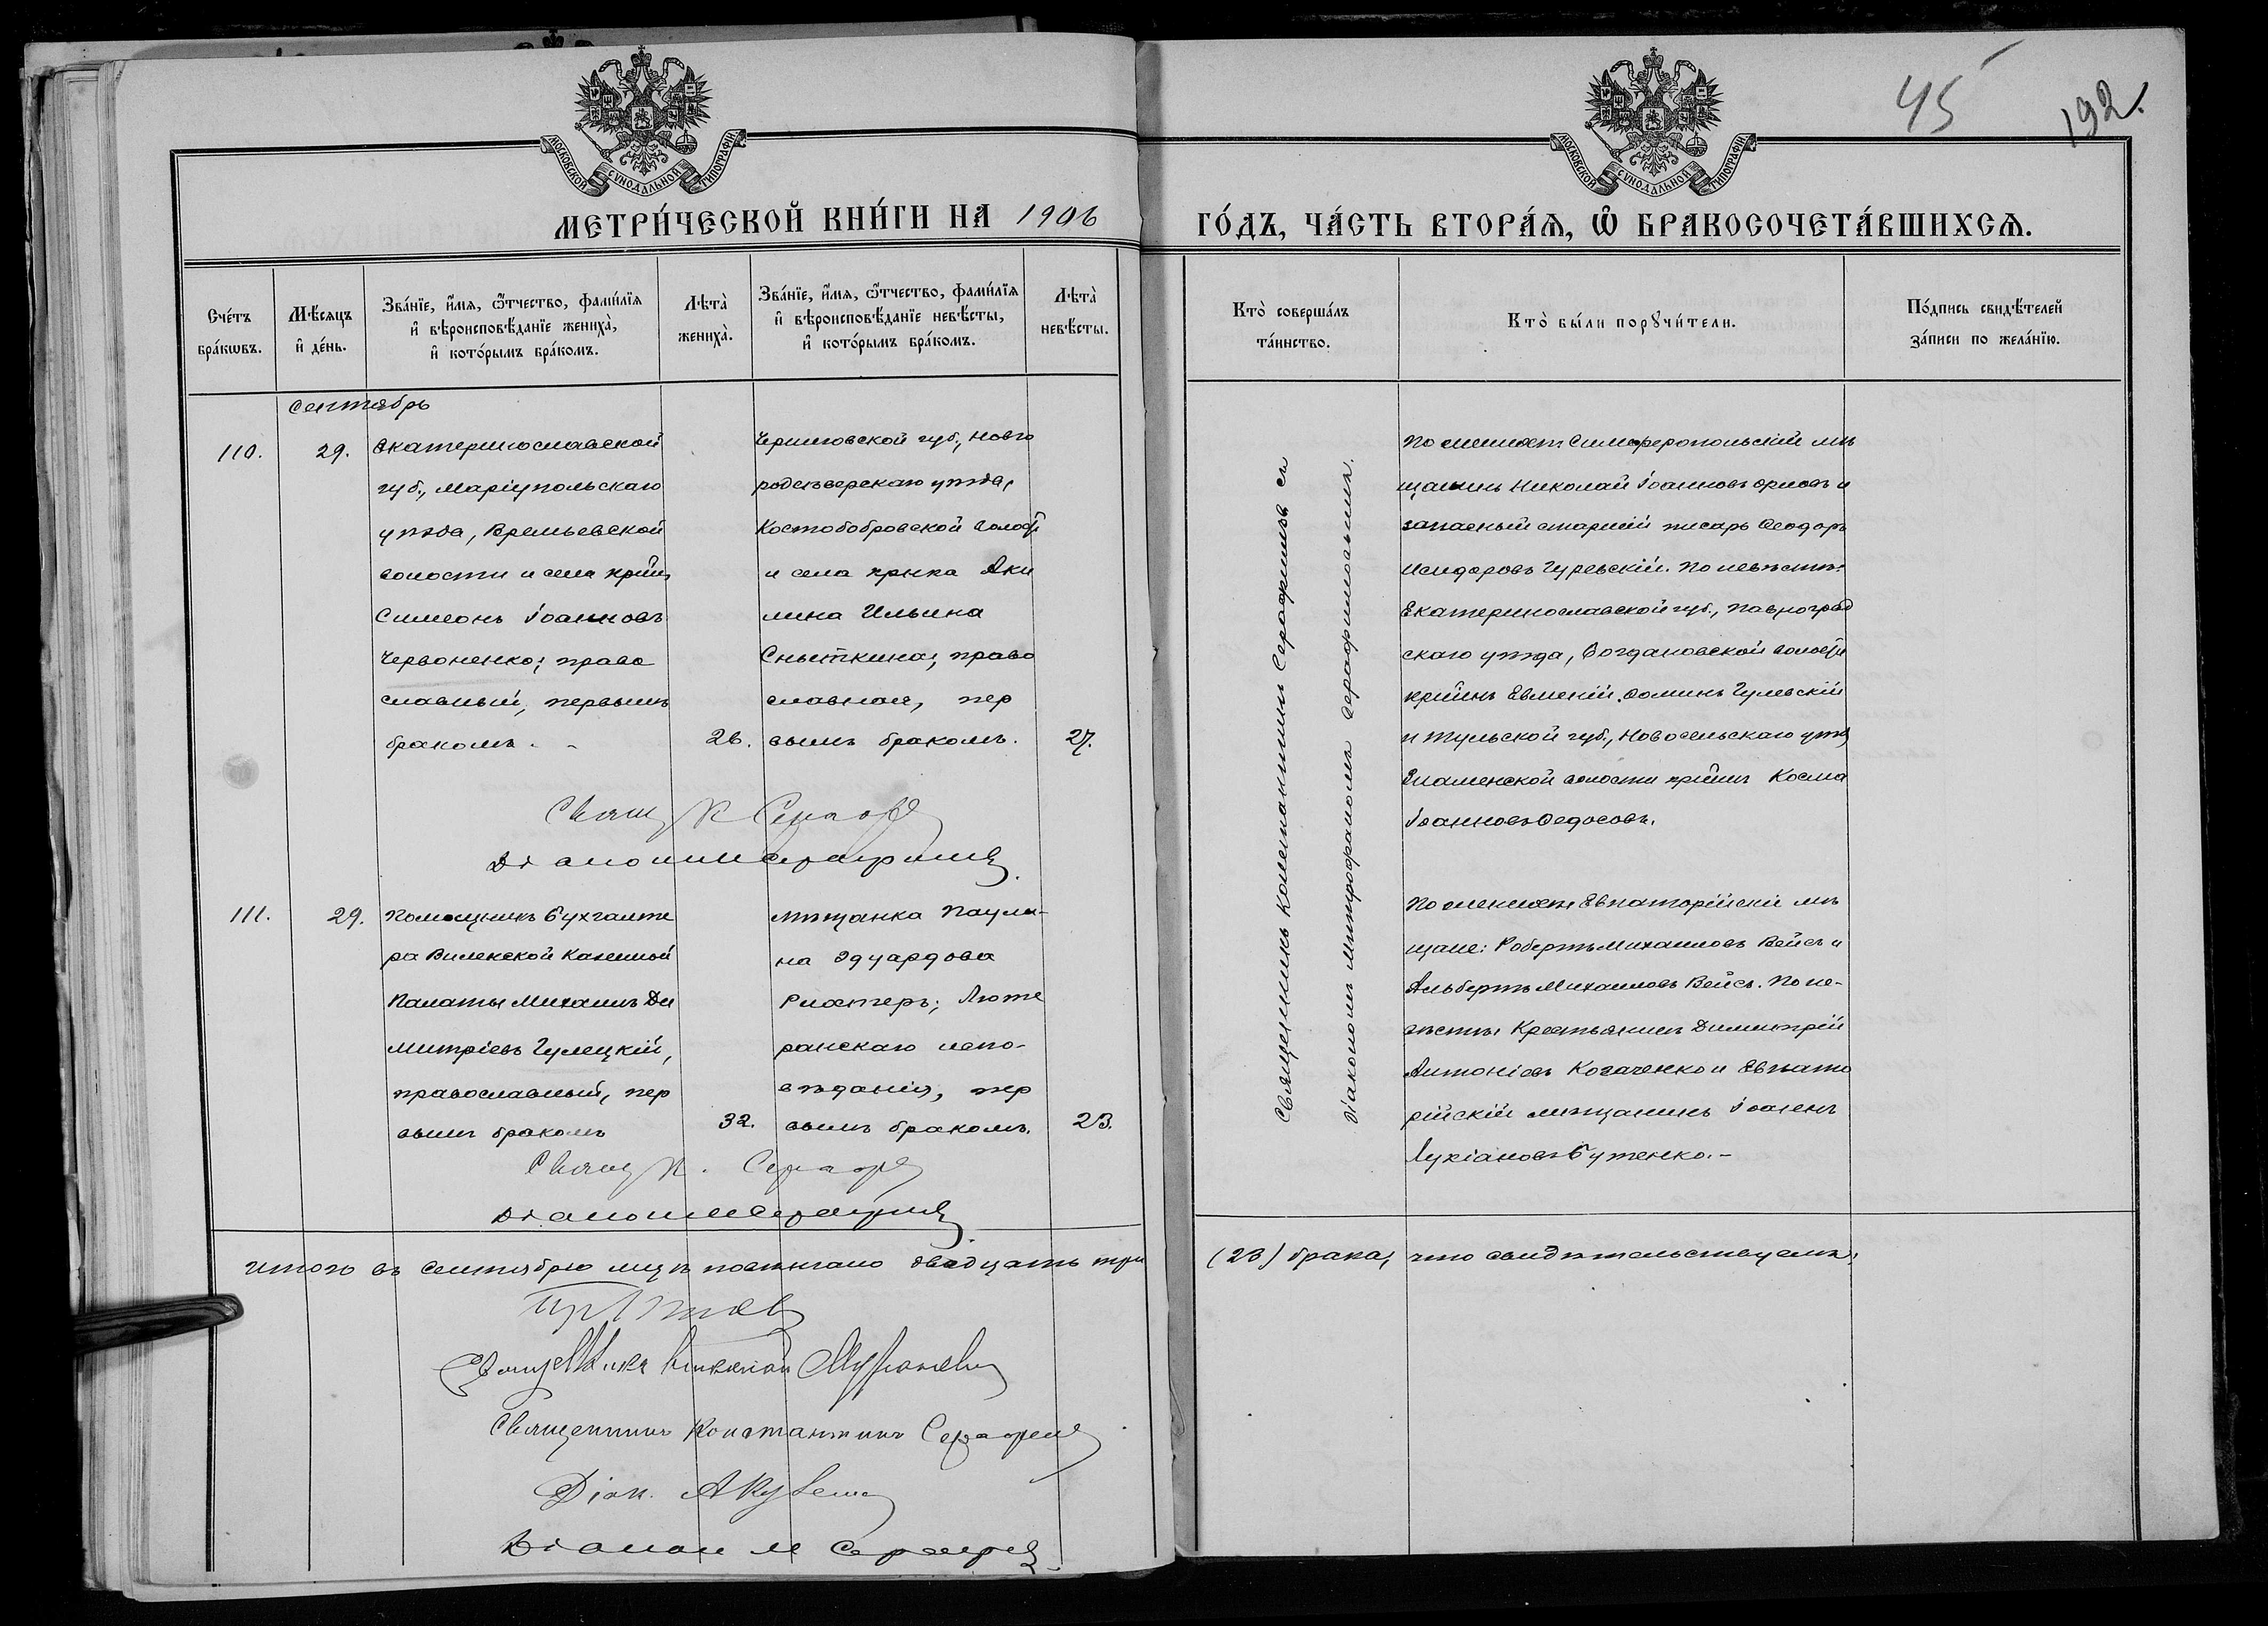 45
192.
МОСКОВСКОЙ СѴНОДАЛЬНОЙ ТИПОГРАФІИ
МОСКОВСКОЙ СѴНОДАЛЬНОЙ ТИПОГРАФІИ
МЕТРИ́ЧЕСКОЙ КНИ́ГИ НА 1906
ГО́ДЪ, ЧА́СТЬ ВТОРА́Ѧ, Ѽ БРАКОСОЧЕТА́ВШИХСѦ.
Сче́тъ
бра́кѡвъ.
Мѣ́сяцъ
и҆ де́нь.
Зва́нїе, и҆́мя, ѻ҆́тчество, фами́лїя
и҆ вѣроисповѣ́данїе жениха̀,
и҆ кото́рымъ бра́комъ.
Лѣта̀
жениха̀.
Зва́нїе, и҆́мя, ѻ҆́тчество, фами́лїя
и҆ вѣроисповѣ́данїе невѣ́сты,
и҆ кото́рымъ бра́комъ.
Лѣта̀
невѣ́сты.
Кто̀ соверша́лъ
та́инство.
Кто̀ бы́ли порꙋчи́тели.
По́дпись свидѣ́телей
за́писи по жела́нїю.
Сентябрь
110.
29.
Екатеринославской
губ., Маріупольскаго
уѣзда, Времьевской
волости и села крнинъ
Симеонъ Іоанновъ
Червоненко; право
славный, первымъ
бракомъ.
26.
Черниговской губ., Новго
родсѣверскаго уѣзда,
Костобобровской волости
и села крнка Аки
лина Ильина
Сныткина; право
славная, пер
вымъ бракомъ.
27.
Священникъ Константинъ Серафимовъ съ
діакономъ Митрофаномъ Серафимовымъ.
По женихѣ: Симферопольскій мѣ
щанинъ Николай Іоанновъ Орловъ и
запасный старшій писарь Ѳеодоръ
Исидоровъ Гуревскій. По невѣстѣ:
Екатеринославской губ., Павлоград
скаго уѣзда, Богдановской волости
крнинъ Евменій Фоминъ Гулевскій
и Тульской губ., Новосельскаго уѣз
Знаменской волости крнинъ Косма
Іоанновъ Ѳедосовъ.
Свящ К Сераф
Діаконъ М Серафимов
111.
29.
Помощникъ бухгалте
ра Виленской Казенной
Палаты Михаилъ Ди
митріевъ Гулецкій,
православный, пер
вымъ бракомъ
32.
Мѣщанка Паули-
на Эдуардова
Рихтеръ; Люте
ранскаго испо-
вѣданія, пер
вымъ бракомъ.
23.
По женихѣ Евпаторійскіе мѣ
щане: Робертъ Михаиловъ Вейсъ и
Альбертъ Михаиловъ Вейсъ. По не-
вѣстѣ: Крестьянинъ Димитрій
Антоніевъ Козаченко и Евпато
рійскій мѣщанинъ Іоаннъ
Лукіановъ Бутенко.-
Свящ К. Сераф
Діаконъ М Серафимов
Итого въ Сентябрѣ мцѣ повѣнчано двадцать три
(23) брака, что свидѣтельствуемъ:
Священникъ Николай
Священникъ Константинъ Серафимов
Діак.
Діакон М Серафимов